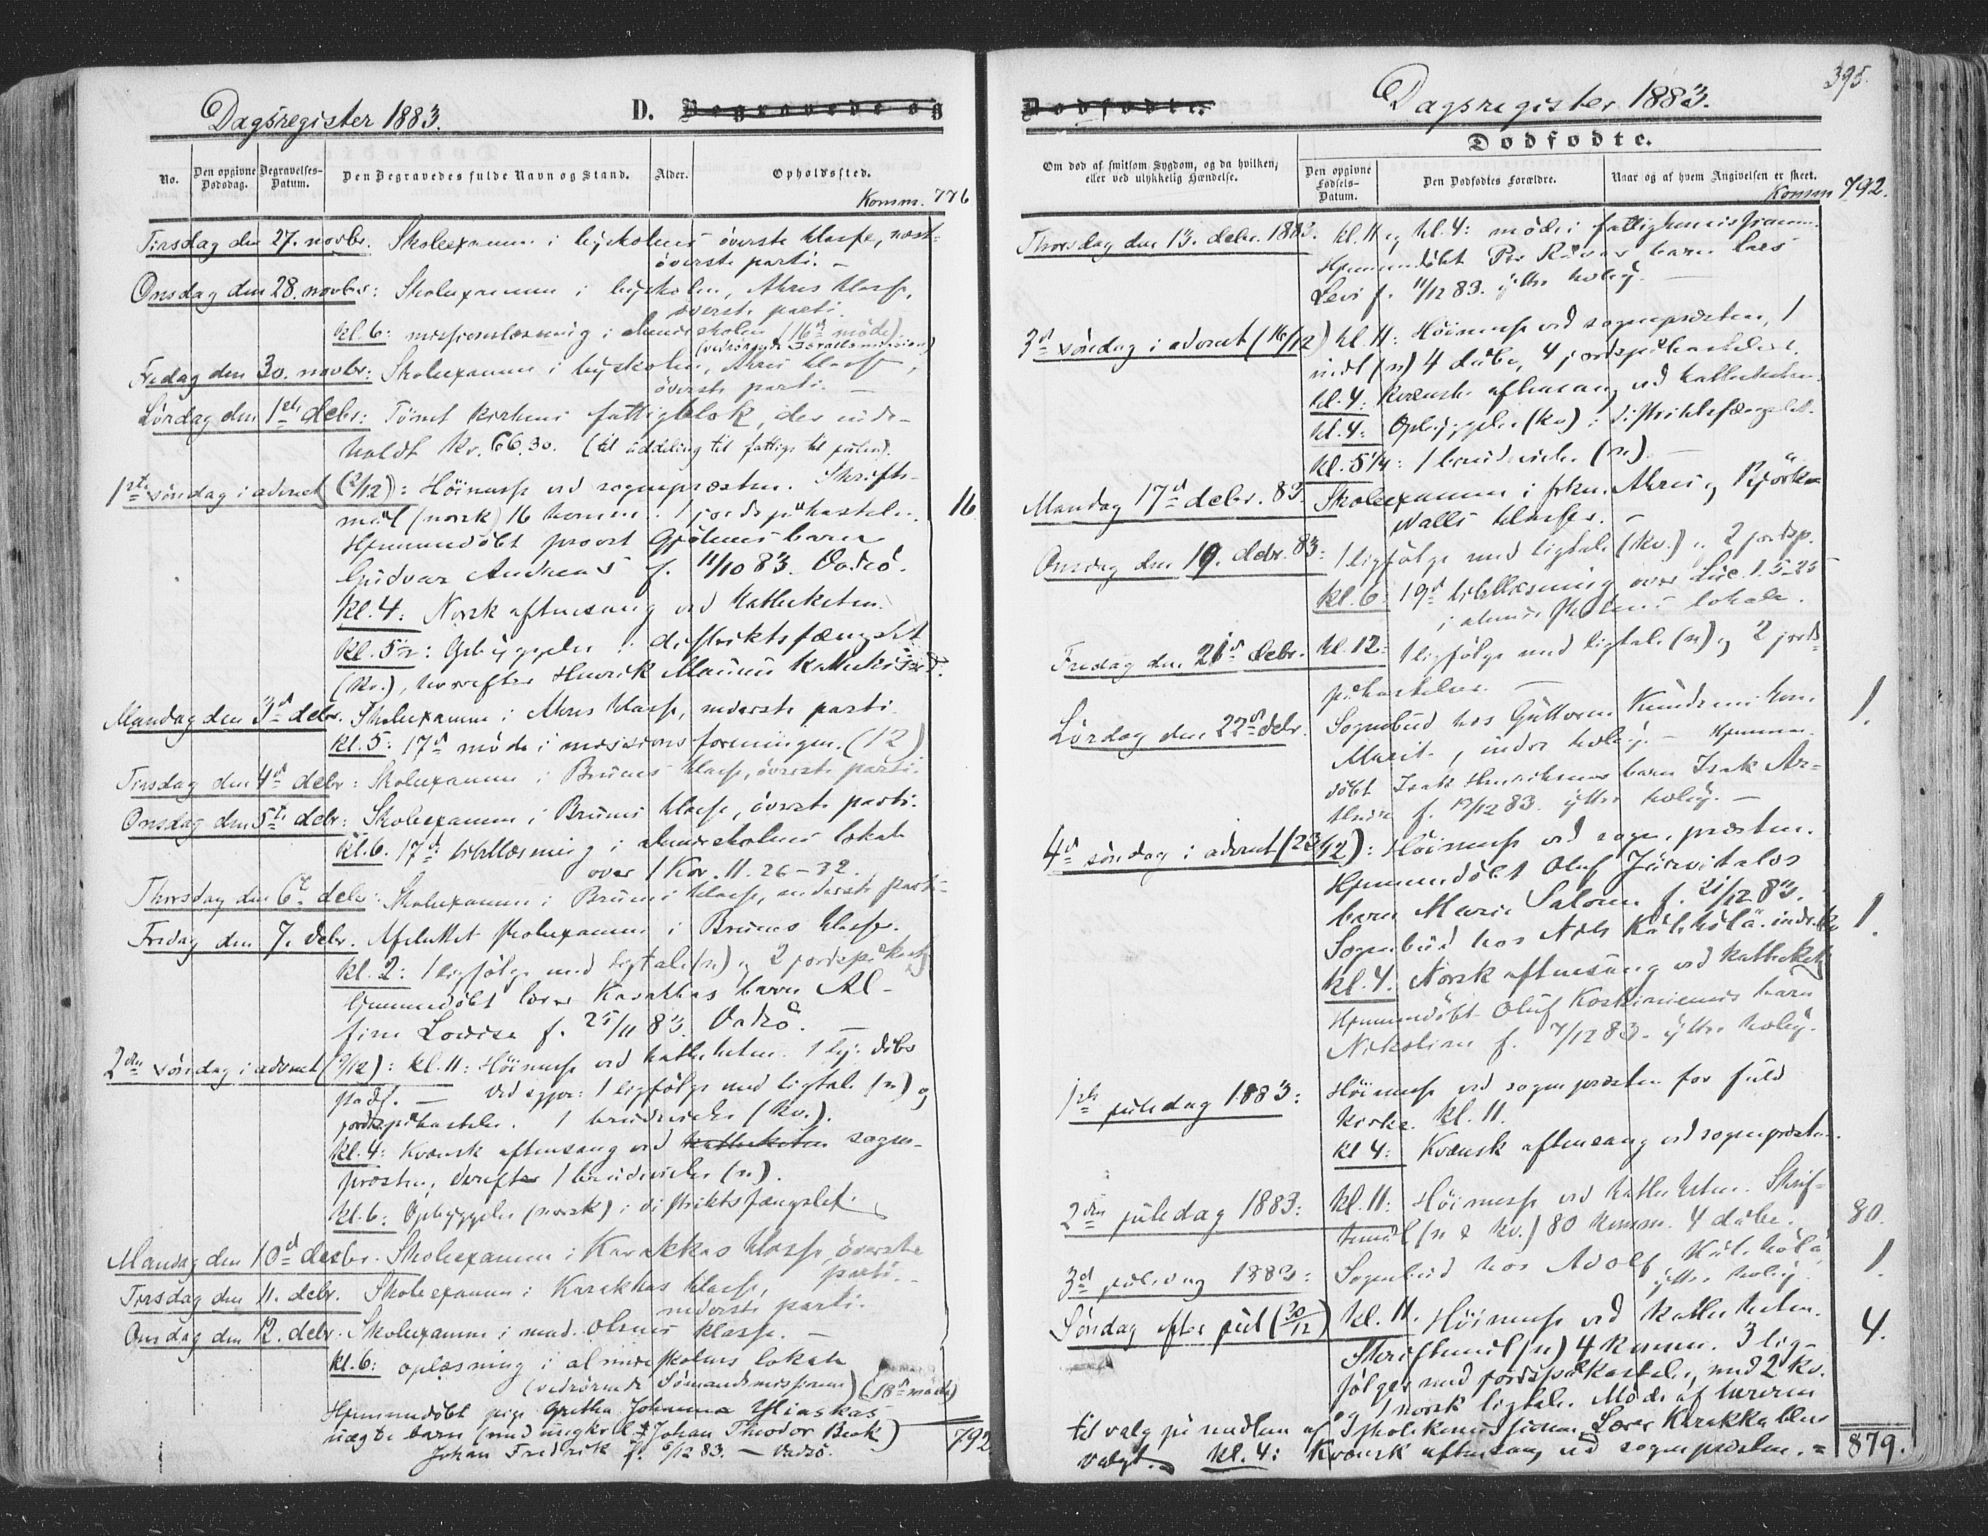 Dagsregister 1883.
D. Begravede og
No.
Den opgivne Dødsdag.
Begravelses-Datum.
Den Begravedes fulde Navn og Stand.
Alder.
Opholdssted.
Komm. 776
Tirsdag den 27. novbr. Skoleexamen i byskolens överste klasse, næst-
överste parti. —
Onsdag den 28. novbr: Skoleexamen i byskolen, Akres klasse,
överste parti.
kl. 6: missionslæsning i almueskolen (16d möde).
(vedrörende Israelsmissionen)
Fredag den 30. novbr: Skoleexamen i byskolen, Akres klasse,
överste parti. —
Lördag den 1ste debr: Tömt kirkens fattigblok, der inde-
holdt Kr. 66.30. (til uddeling til fattige til julen).
1ste söndag i advent (2/12): Höimesse ved sognepræsten. Skrifte-
mål (norsk) 16 komm. 1 jordspåkastelse. 16
Hjemmedöbt provst Gjölmes barn
Gudvar Andreas f. 11/10 83. Vadsö.
Kl. 4: Norsk aftensang ved kateketen.
kl. 5½: Opbyggelse i distriktsfængslet
(kv.), hvorefter Henrik Maunu
Mandag den 3d debr. Skoleexamen i Akres klasse, nederste parti.
kl. 5: 17d möde i missionsforeningen. (12)
Tirsdag den 4d debr: Skoleexamen i Bruuns klasse, överste parti.
Onsdag den 5te debr: Skoleexamen i Bruuns klasse, överste parti.
kl. 6. 17d bibellæsning i almueskolens lokale
over 1 Kor. 11. 26-32.
Thorsdag den 6te debr: Skoleexamen i Bruuns klasse, nederste parti.
Fredag den 7. debr. Afsluttet skoleexamen i Bruuns klasse.
kl. 2: 1 ligfölge med ligtale (n) og 2 jordspåkast.
Hjemmedöbt lærer Karakkas barn Al-
fine Lovise f. 25/11 83. Vadsö. —
2den söndag i advent (9/12): kl. 11: Höimesse ved kateketen. 1 hj. döbt
Ved sgpr: 1 ligfölge med ligtale (n) og
jordspåkastelse. 1 brudevielse (kv.).
kl. 4: Kvænsk aftensang ved kateketen sogne-
præsten, derefter 1 brudevielse (n).
kl. 6: Opbyggelse (norsk) i distriktsfængslet.
Mandag den 10d decbr. Skoleexamen i Karakkas klasse överste
parti. —
Tirsdag den 11. debr. Skoleexamen i Karakkas klasse,
nederste parti.
Onsdag den 12. debr. Skoleexamen i mad. Olsens klasse. —
kl. 6: oplæsning i almueskolens lokale
(vedrörende Sömandsmissionen) (18d möde)
Hjemmedöbt pige Gretha Johanna
uægte barn (med ungkarl Johan Theodor Beck)
Johan Fredrik f. 6/12 83. — Vadsö.
792
395.
Dødfødte.
Dagsregister 1883.
Dødfødte.
Om død af smitsom Sygdom, og da hvilken, eller ved ulykkelig Hændelse.
Den opgivne Fødsels-Datum.
Den Dødfødtes Forældre.
Naar og af hvem Angivelsen er skeet.
Komm 792.
Thorsdag den 13. debr. 1883. kl. 11 og kl. 4: möde i fattigkommissionen.
Hjemmedöbt Per barn Lars
Levi f. 11/12 83. ytre
3d söndag i advent (16/12) kl. 11: Höimesse ved sognepræsten, 1
indl (n) 4 dåbe, 4 jordspåkastelser.
kl. 4: Kvænsk aftensang ved kateketen.
kl. 4: Opbyggelse (kv) i distriktsfængslet.
kl. 5¼: 1 brudevielse (n). —
Mandag 17d debr. 83. Skoleexamen i frkn. Akres og Björke-
valls klasser. —
Onsdag den 19. debr. 83: 1 ligfölge med ligtale (kv.) og 2 jordsp.
kl. 6: 19d bibellæsning over Luc. 1. 5-25
i almueskolens lokale.
Fredag den 21d debr. kl. 12: 1 ligfölge med ligtale (n) og 2 jords-
påkastelser. —
Lördag den 22d debr. Sognebud hos Guttorm Knudsens kone 1.
Marit, indre — Hjemme-
döbt Isak Henriksens barn Isak Ar-
f. 19/12 83. ytre
4d söndag i advent (23/12): Höimesse ved sognepræsten.
Hjemmedöbt Oluf Järvitalos
barn Marie Salome f. 21/12 83.
Sognebud hos Nils indre 1.
kl. 4. Norsk aftensang ved kateket.
Hjemmedöbt Oluf Koskiniemis barn
Nikoline f. 7/12 83. ytre
1ste juledag 1883: Höimesse ved sognepræsten for fuld
kirke. kl. 11.
kl 4: Kvænsk aftensang ved sognepræsten.
2den juledag 1883: kl. 11: Höimesse ved kateketen. Skrif-
temål (n & kv.) 80 komm. 4 dåbe. 80.
3d juledag 1883: Sognebud hos Adolf 1.
ytre
Söndag efter jul (30/12) kl. 11. Höimesse ved kateketen.
Skriftemål (n) 4 komm. 3 lig- 4.
fölger med jordspåkastelse, med 2 kv.
og 1 norsk ligtale. Möde af lærerne
til valg på medlem af skolekommissionen. Lærer Karakka blev
valgt. kl. 4: Kvænsk aftensang ved sognepræsten. =
879.